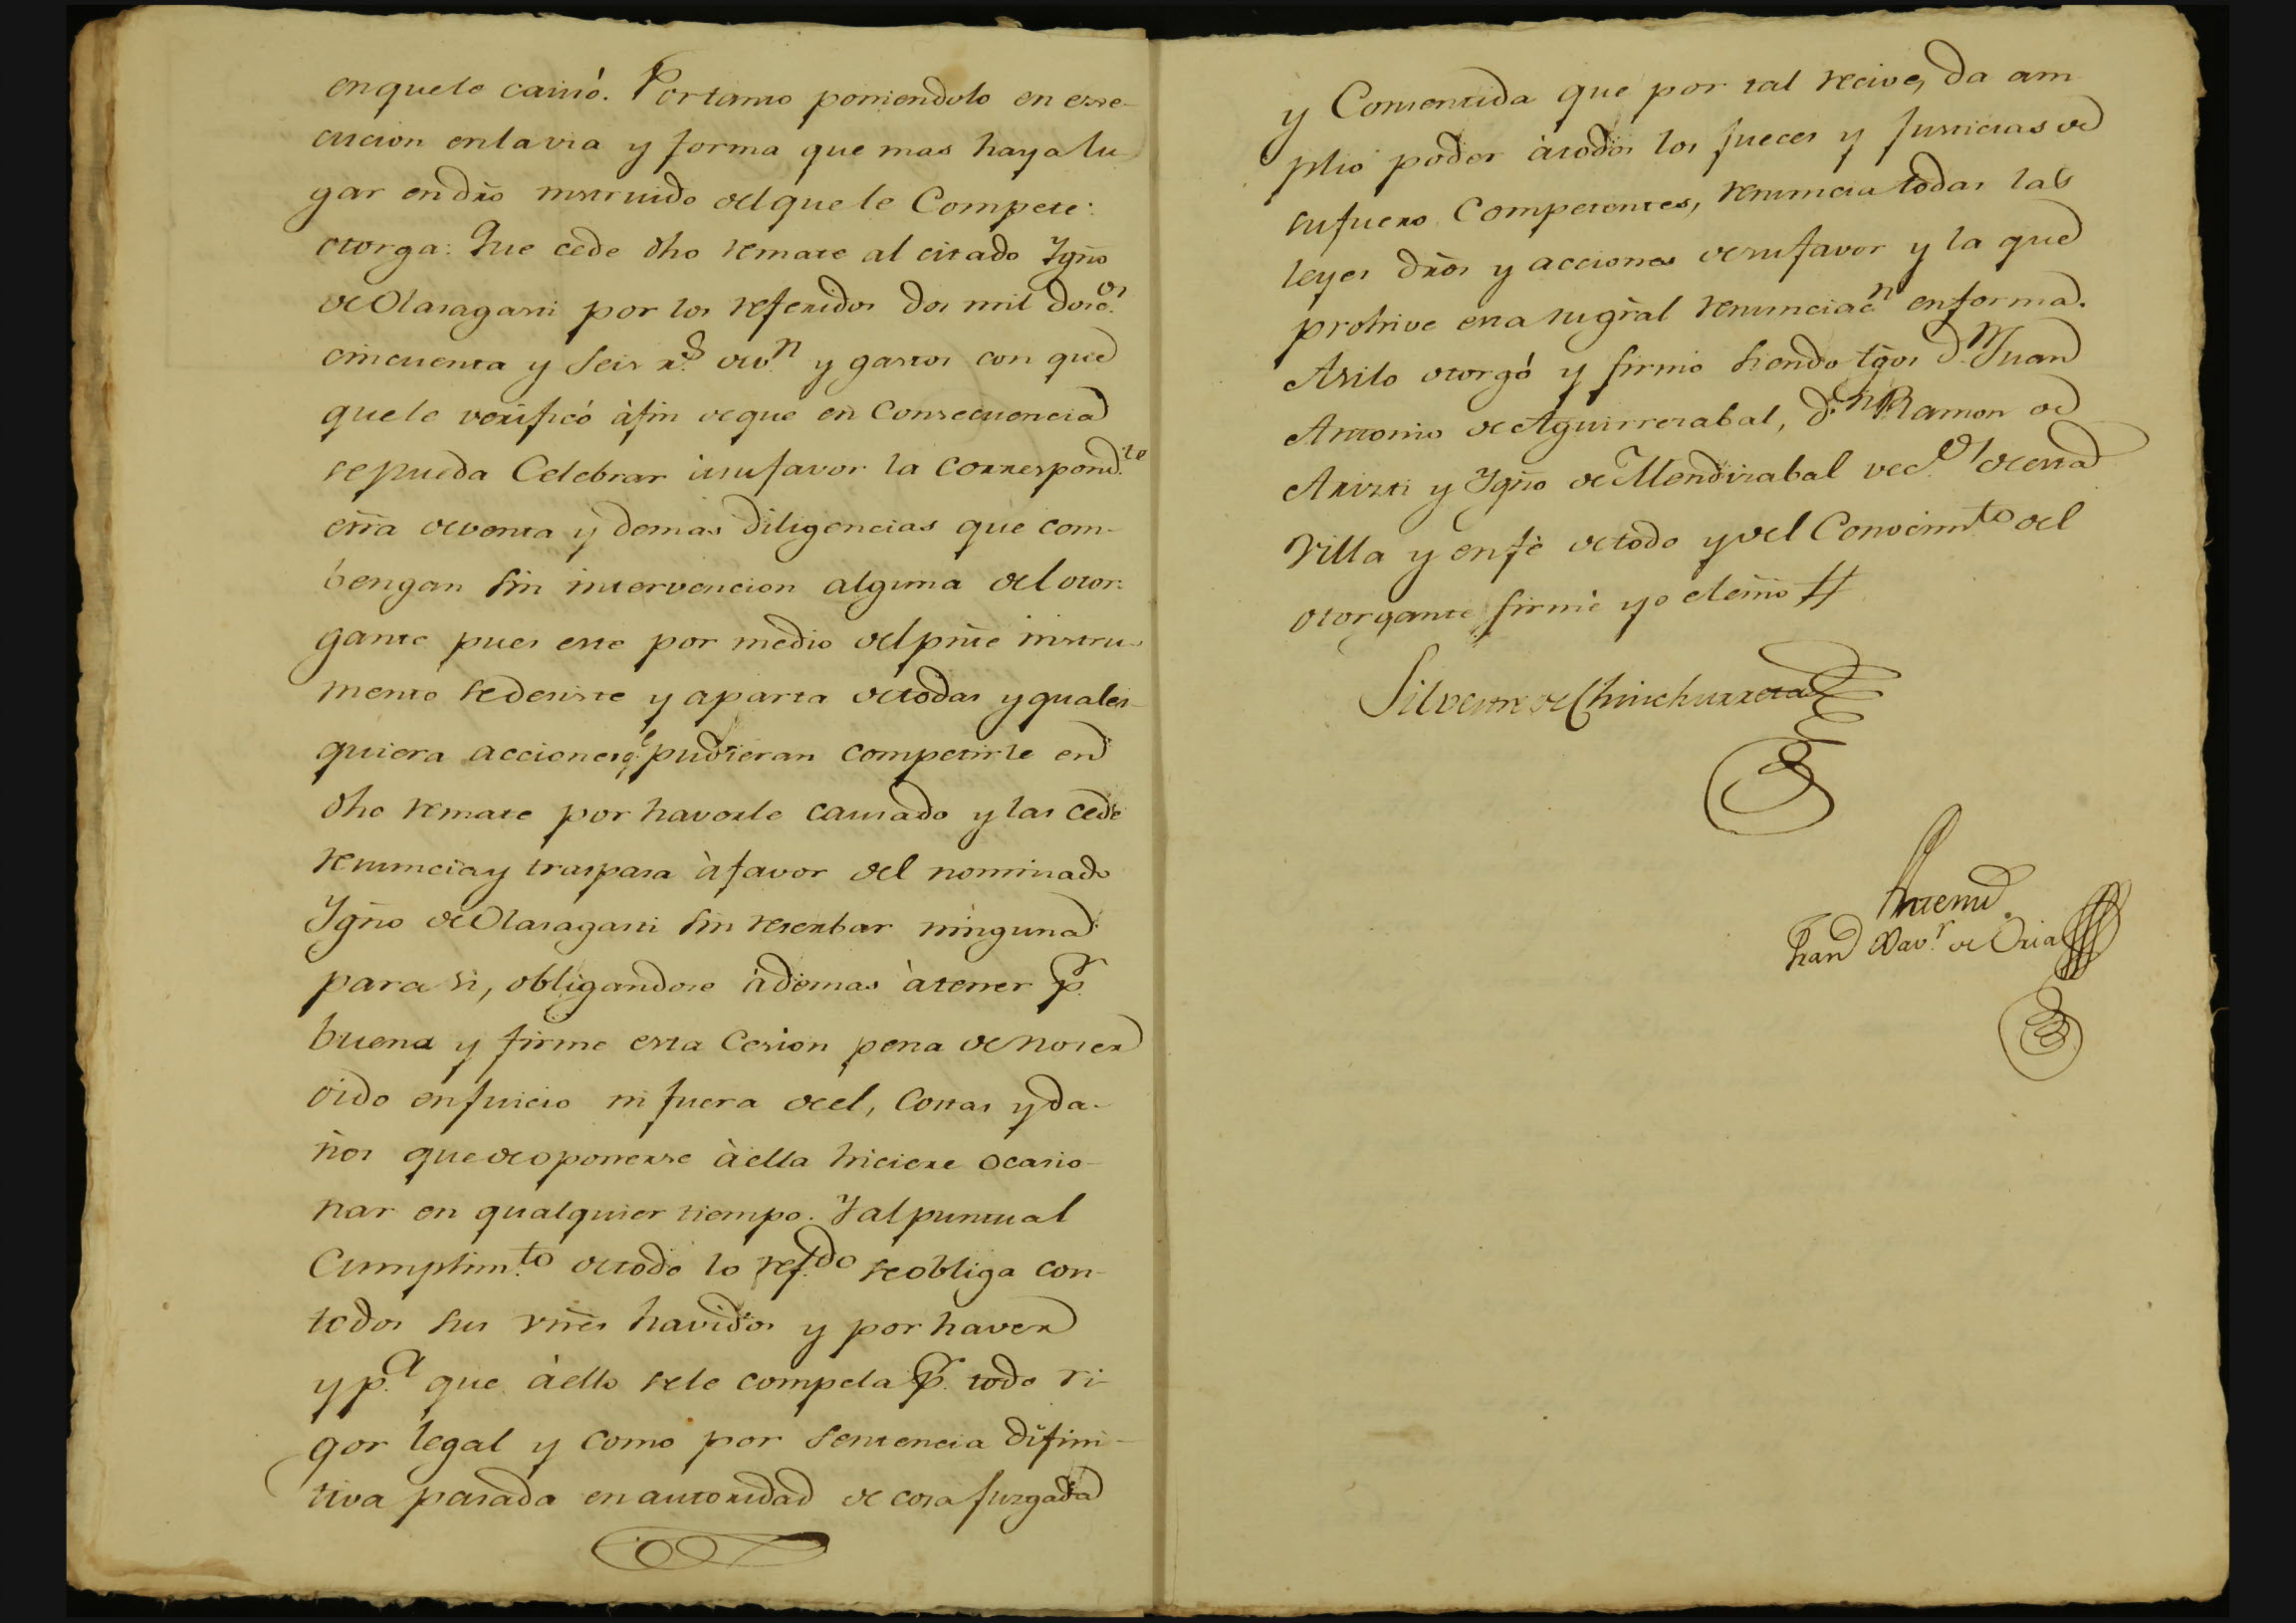 en que le causó. Por tanto poniendolo en exe-
cucion en la via y forma que mas haya lu-
gar en dr̃o instruido del que le Compete:
otorga: Que cede dho remate al citado Ygñ̃o
de Olasagasti por los referidos dos mil dosc.os
cincuenta y seis r.s de v.n y gastos con que
que le verificó à fin de que en Consecuencia
se pueda Celebrar à su favor la correspond.te
esc̃ra de venta y demas diligencias que com-
bengan sin intervencion alguna del otor-
gante pues este por medio del pñte instru-
mento se desiste y aparta de todas y quales-
quiera acciones q.e pudieran competirle en
dho remate por haverle causado y las cede
renuncia y traspasa à favor del nominado
Ygñ̃o de Olasagasti sin reserbar ninguna
para si, obligandose àdemas àtener p.r
buena y firme esta Cesion pena de no ser
oido en Juicio ni fuera de el, Costas y da-
ños que de oponerse àella hiciere ocasio-
nar en qualquier tiempo. Y al puntual
Cumplim.to de todo lo ref.do se obliga con
todos sus vñes havidos y por haver
y p.a que àello se le compela p.r todo ri-
gor legal y como por sentencia difini-
tiva pasada en autoridad de cosa Juzgada
y Consentida que por tal recive, da am
plio poder àtodos los Jueces y Justicias de
su fuero Competentes, renuncia todas las
leyes dr̃os y acciones de su favor y la que
prohive esta su gr̃al renunciac.n en forma.
Asi lo otorgó y firmó siendo tg̃os d.n Juan
Antonio de Aguirrezabal, d.n Ramon de
Arizti y Ygñ̃o de Mendizabal vec.os de esta
Villa y en fè de todo y del Conocim.to del
otorgante firmè yo el es̃no //
Silvestre de Chinchurreta
Antemi
Fran Xav.r de Oria